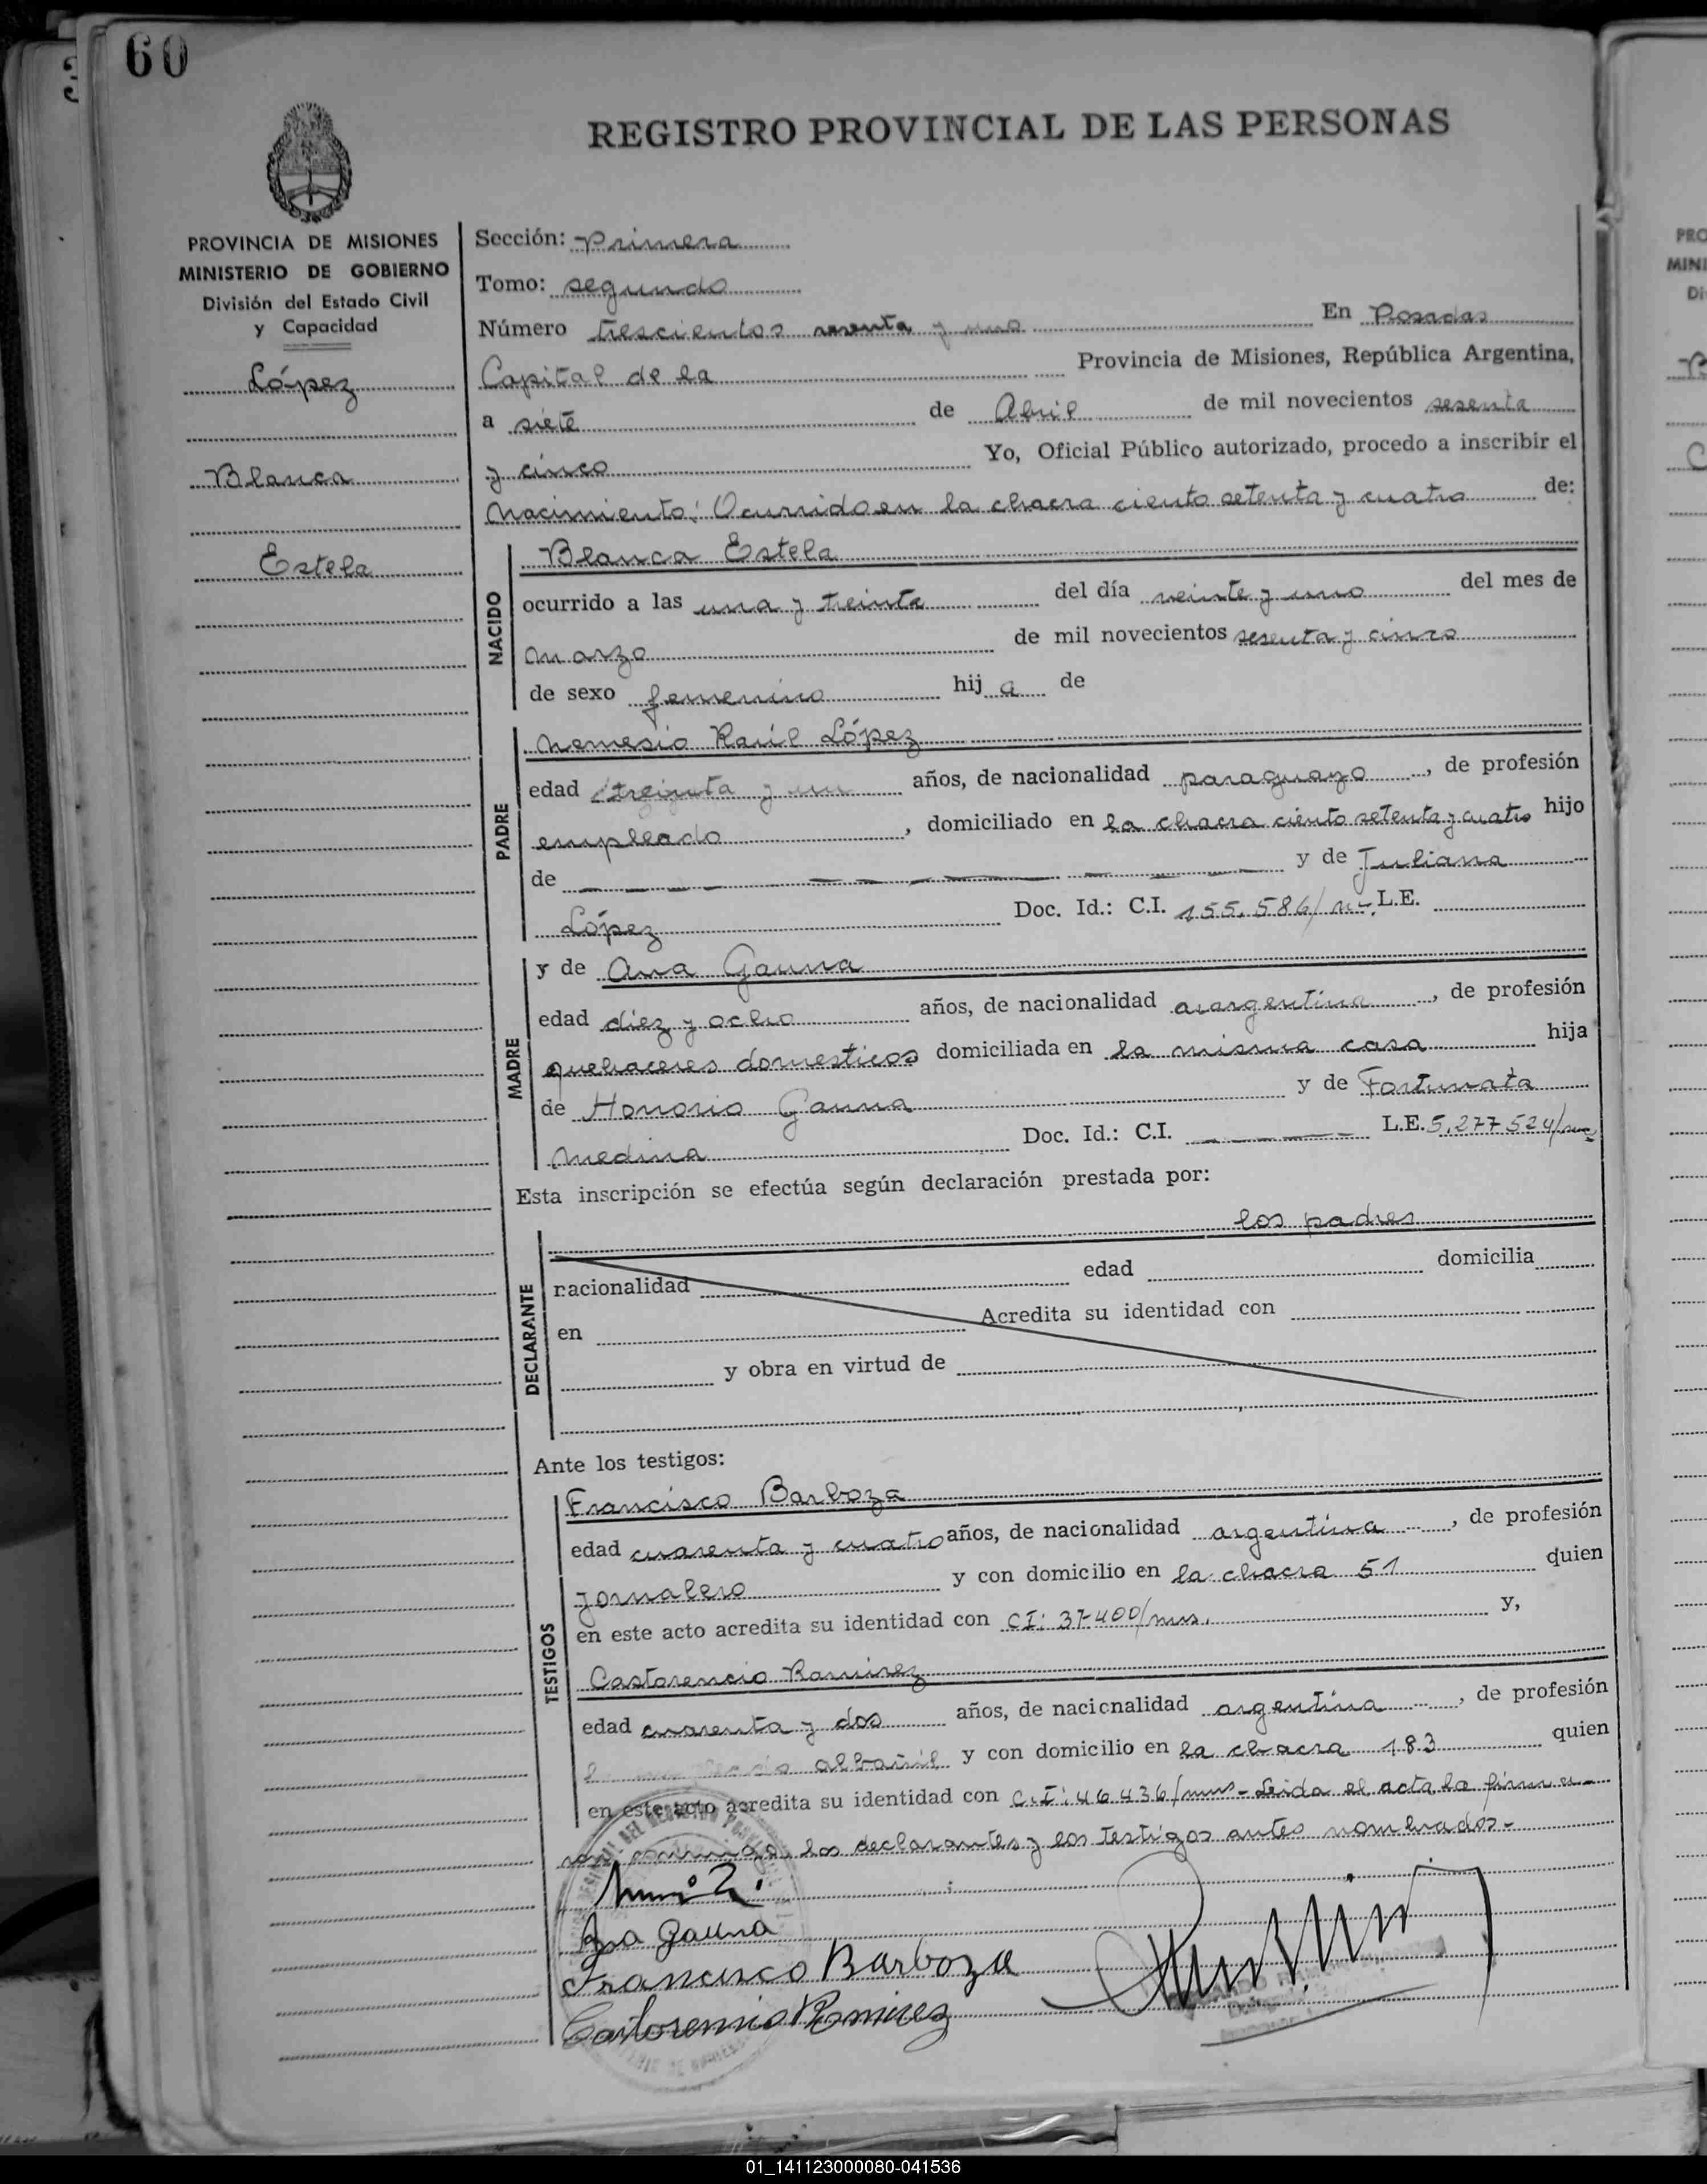 60
REGISTRO PROVINCIAL DE LAS PERSONAS
PROVINCIA DE MISIONES
MINISTERIO DE GOBIERNO
División del Estado Civil
y Capacidad
López
Blanca
Estela
Sección: Primera
Tomo: segundo
Número trescientos sesenta y uno En Posadas
Capital de la Provincia de Misiones, República Argentina,
a siete de Abril de mil novecientos sesenta
y cinco Yo, Oficial Público autorizado, procedo a inscribir el
Nacimiento: Ocurrido en la chacra ciento setenta y cuatro de:
NACIDO
Blanca Estela
ocurrido a las una y treinta del día veinte y uno del mes de
Marzo de mil novecientos sesenta y cinco
de sexo femenino hij a de
PADRE
Nemesio Raúl López
edad treinta y un años, de nacionalidad paraguayo, de profesión
empleado, domiciliado en la chacra ciento setenta y cuatro hijo
de — — — y de Juliana
López Doc. Id.: C.I. 155.586/ L.E.
MADRE
y de Ana Gauna
edad diez y ocho años, de nacionalidad argentina, de profesión
quehaceres domesticos domiciliada en la misma casa hija
de Honorio Gauna y de Fortunata
Medina Doc. Id.: C.I. — — — L.E. 5.277.524/
Esta inscripción se efectúa según declaración prestada por:
los padres
DECLARANTE
nacionalidad edad domicilia
en Acredita su identidad con
y obra en virtud de
Ante los testigos:
TESTIGOS
Francisco Barboza
edad cuarenta y cuatro años, de nacionalidad argentina, de profesión
jornalero y con domicilio en la chacra 51 quien
en este acto acredita su identidad con CI: 37400/mns. y,
Castorencio Ramirez
edad cuarenta y dos años, de nacionalidad argentina, de profesión
albañil y con domicilio en la chacra 183 quien
en este acto acredita su identidad con C.I: 46.436/mns - Leida el acta la firman
conmigo, los declarantes y los testigos antes nombrados.-
Ana Gauna
Francisco Barboza
Castorencio Ramirez
01_141123000080-041536